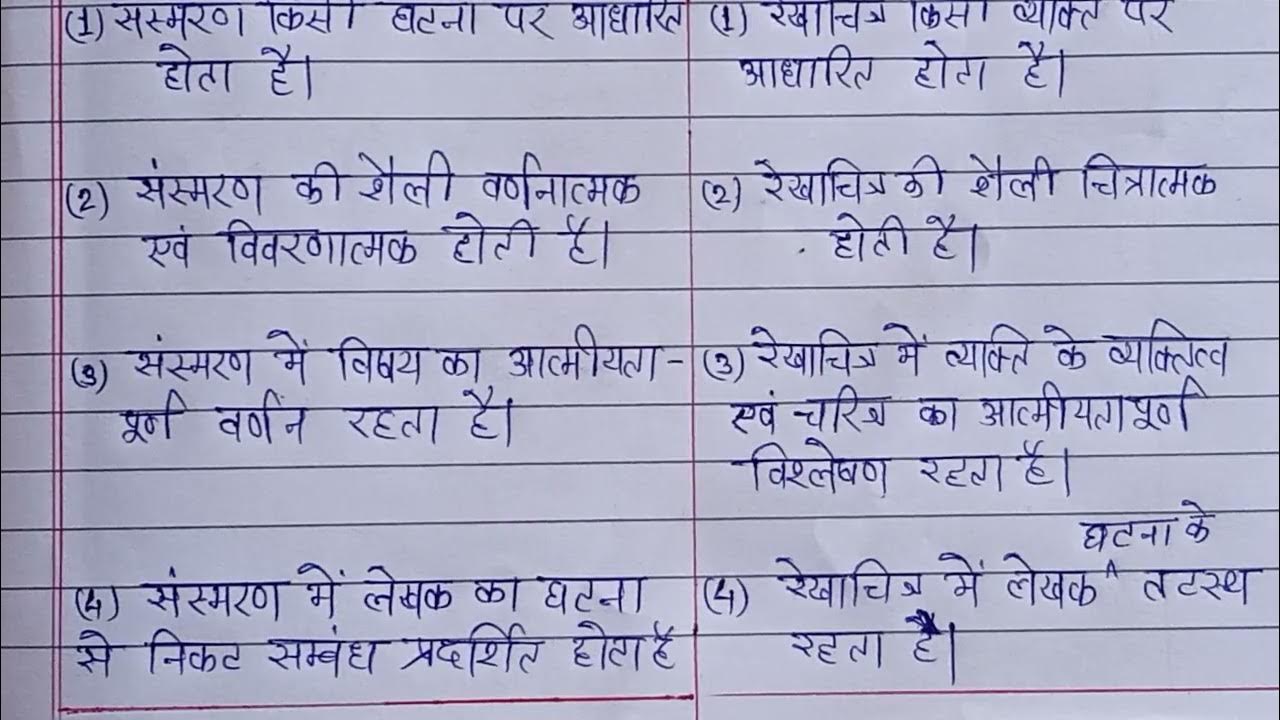 (1) संस्मरण किसी घटना पर आधारित
होता है।
(2) संस्मरण की शैली वर्णनात्मक
एवं विवरणात्मक होती है।
(3) संस्मरण में विषय का आत्मीयता-
पूर्ण वर्णन रहता है।
(4) संस्मरण में लेखक का घटना
से निकट सम्बंध प्रदर्शित होता है
(1) रेखाचित्र किसी व्यक्ति पर
आधारित होता है।
(2) रेखाचित्र की शैली चित्रात्मक
होती है।
(3) रेखाचित्र में व्यक्ति के व्यक्तित्व
एवं चरित्र का आत्मीयतापूर्ण
विश्लेषण रहता है।
घटना के
(4) रेखाचित्र में लेखक ^ तटस्थ
रहता है।